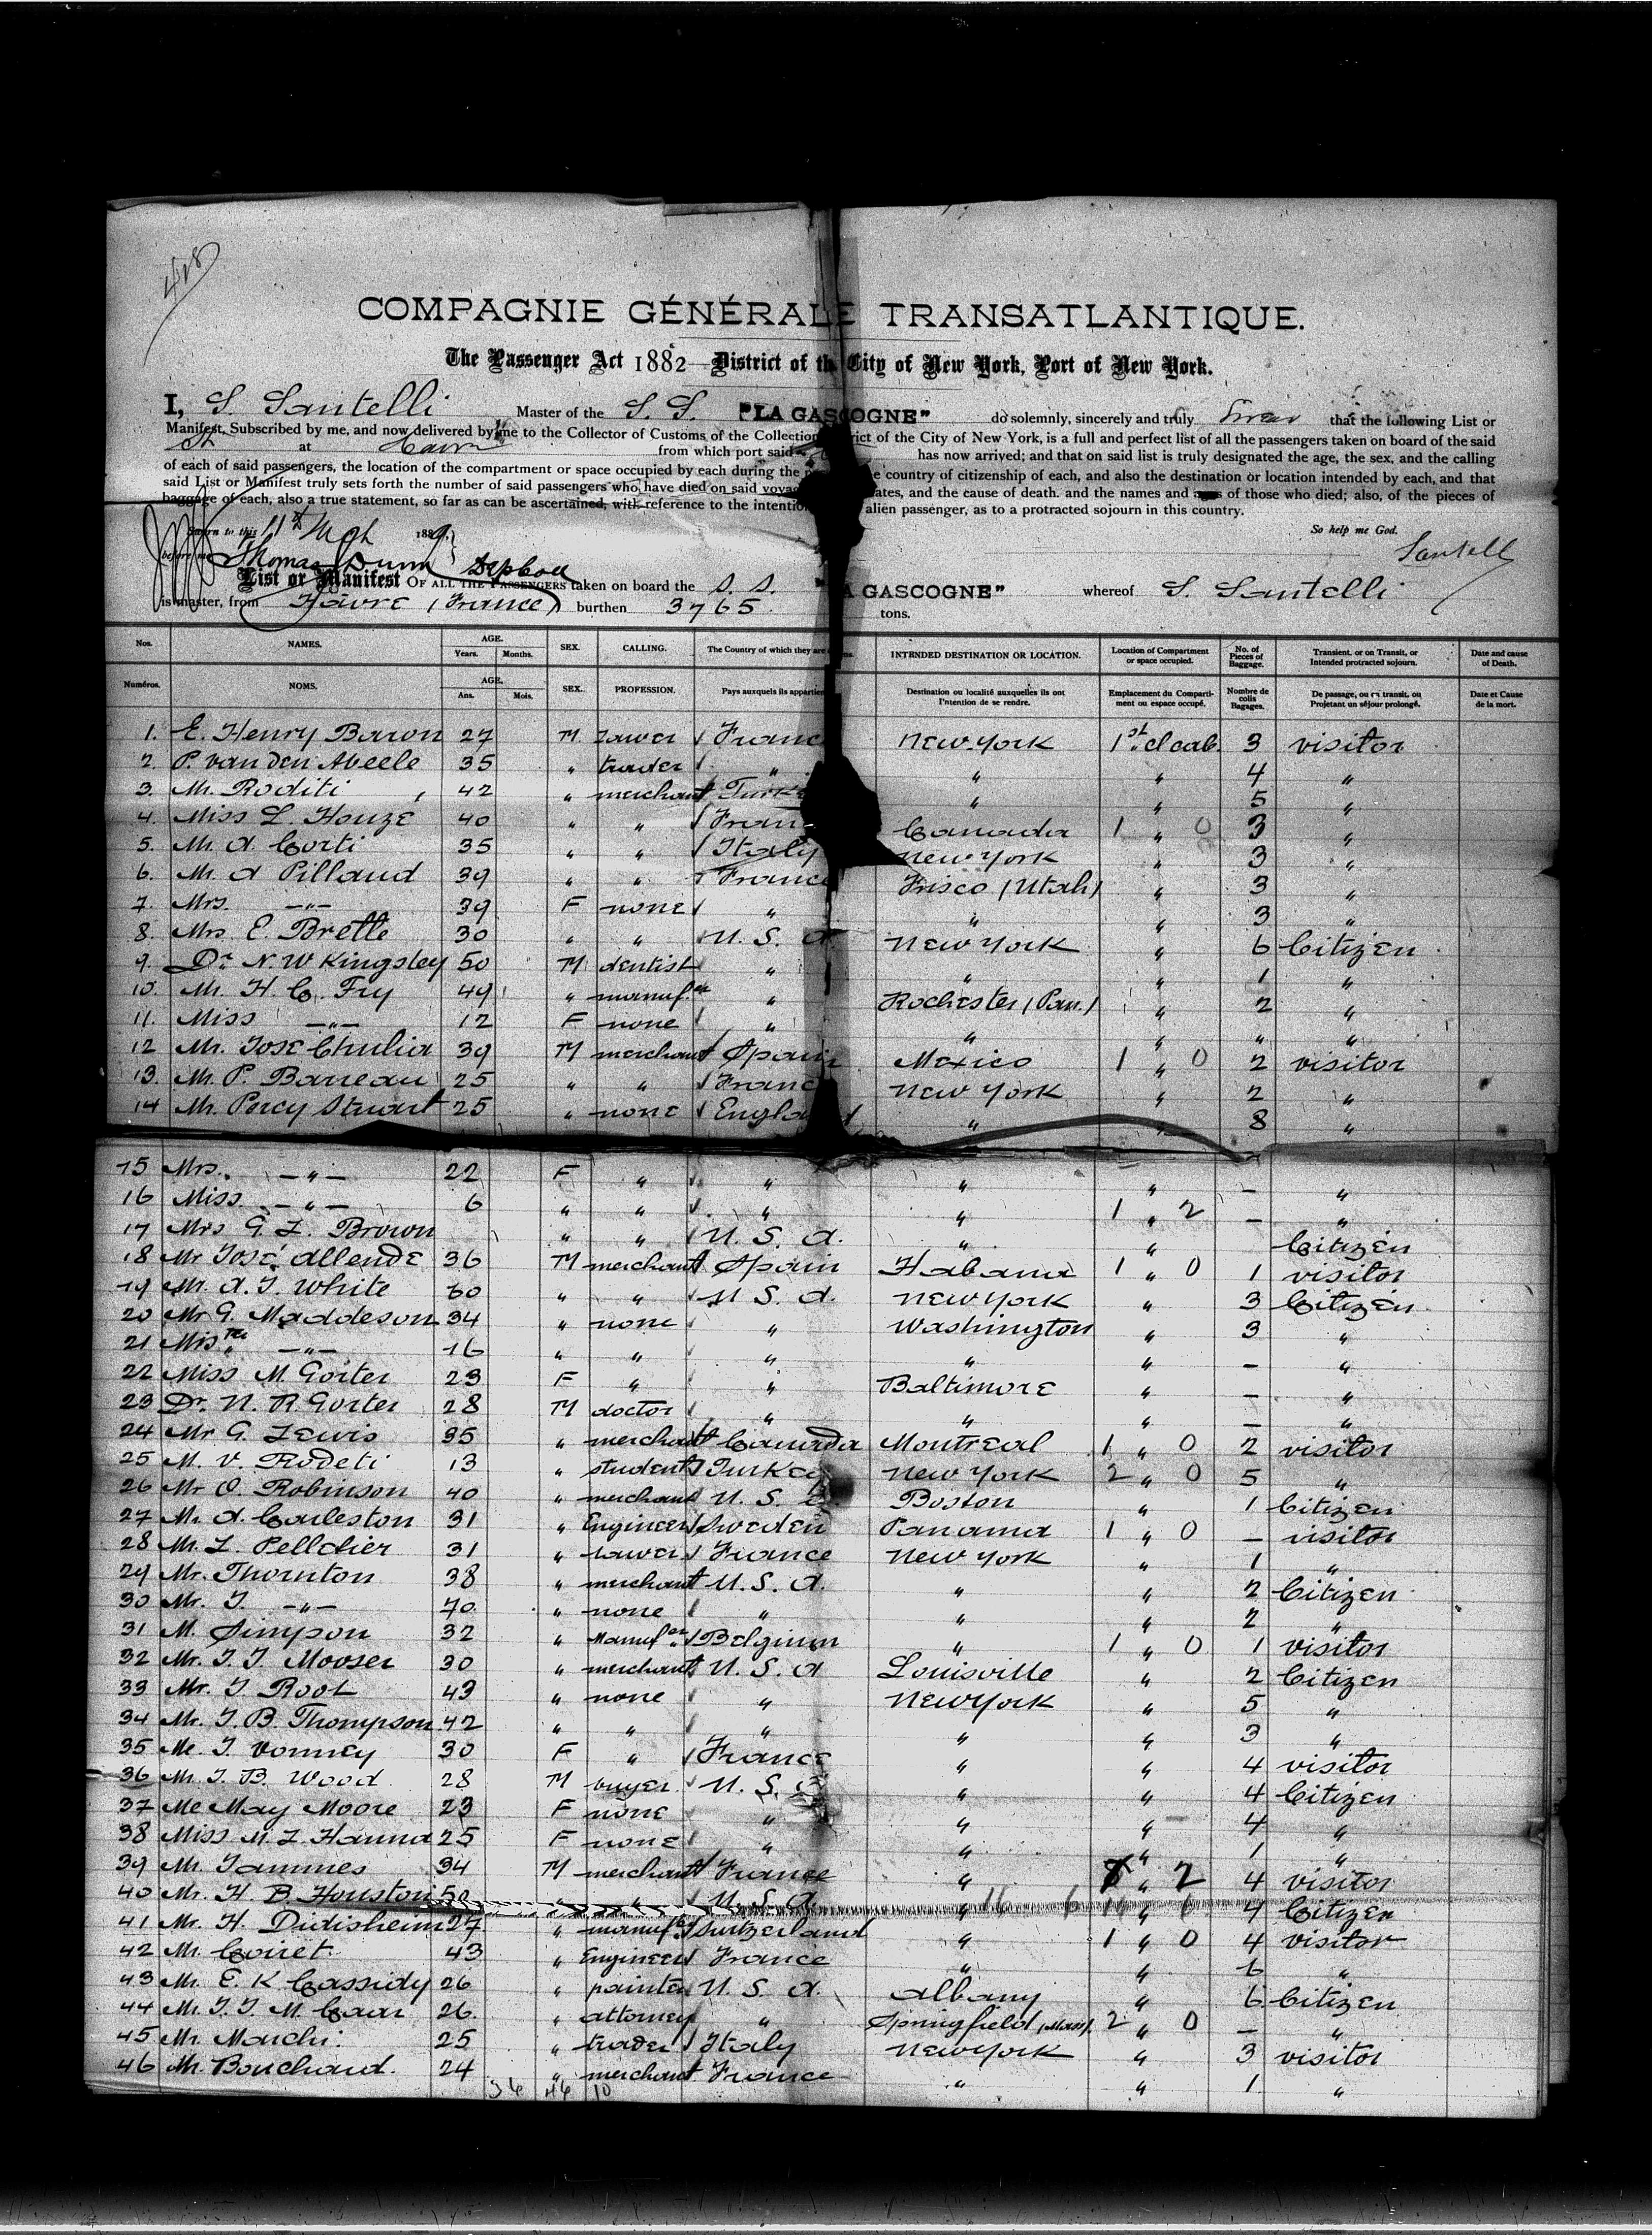 408
COMPAGNIE GÉNÉRALE TRANSATLANTIQUE.
The Passenger Act 1882 District of the City of New York, Port of New York.
I, S. Santelli Master of the S. S. "LA GASCOGNE" do solemnly, sincerely and truly Swear that the following List or
Manifest, Subscribed by me, and now delivered by me to the Collector of Customs of the Collection District of the City of New York, is a full and perfect list of all the passengers taken on board of the said
at from which port said has now arrived; and that on said list is truly designated the age, the sex, and the calling
of each of said passengers, the location of the compartment or space occupied by each during the country of citizenship of each, and also the destination or location intended by each, and that
said List or Manifest truly sets forth the number of said passengers who have died on said voyage dates, and the cause of death. and the names and of those who died; also, of the pieces of
baggage of each, also a true statement, so far as can be ascertained, with reference to the intention alien passenger, as to a protracted sojourn in this country.
Sworn to this 11th Mch 1889. So help me God.
before me Thomas Dunn Santelli
List or Manifest OF ALL THE PASSENGERS taken on board the S. S. "LA GASCOGNE" whereof S. Santelli
is master, from Havre (France) burthen 3765 tons.
Nos. NAMES. AGE. Years. Months. SEX. CALLING. The Country of which they are INTENDED DESTINATION OR LOCATION. Location of Compartment or space occupied. No. of Pieces of Baggage. Transient. or on Transit, or Intended protracted sojourn. Date and cause of Death.
Numéros. NOMS. AGE. Ans. Mois. SEX. PROFESSION. Pays auxquels ils appartien Destination ou localité auxquelles ils ont l'intention de se rendre. Emplacement du Comparti-ment ou espace occupé. Nombre de colis Bagages. De passage, ou en transit, ou Projetant un séjour prolongé. Date et Cause de la mort.
1. E. Henry Baron 27 M. Lawer France New-York 1st Cl cab. 3 visitor
2. P. van den Abeele 35 " trader " " " 4 "
3. Mr. Roditi 42 " merchant Turkey " " 5 "
4. Miss L. Houze 40 " " France Canada 1 " 0 3 "
5. Mr. A. Corti 35 " " Italy New York " 3 "
6. Mr. A Pillaud 39 " " France Frisco (Utah) " 3 "
7. Mrs. —"— 39 F none " " " 3 "
8. Mrs. E. Brette 30 " " U. S. A. New York " 6 Citizen
9. Dr. N. W Kingsley 50 M dentist " " " 1 "
10. Mr. H. C. Fry 49 " manuf.er " Rochester (Pen.) " 2 "
11. Miss —"— 12 F none " " " " "
12 Mr. José Chulia 39 M merchant Spain Mexico 1 " 0 2 visitor
13. Mr. P. Barreau 25 " " France New York " 2 "
14 Mr. Percy Stuart 25 " none England " " 8 "
15 Mrs. —"— 22 F " " " " — "
16 Miss —"— 6 " " " " 1 " 2 — "
17 Mrs G. L. Brown " " U. S. A. " " Citizen
18 Mr José Allende 36 M merchant Spain Habana 1 " 0 1 visitor
19 Mr. A. J. White 60 " " U. S. A. New York " 3 Citizen
20 Mr G. Maddeson 34 " none " Washington " 3 "
21 Mister —"— 16 " " " " " — "
22 Miss M. Gorter 23 F " " Baltimore " — "
23 Dr. N. R. Gorter 28 M doctor " " " — "
24 Mr G. Lewis 35 " merchant Canada Montreal 1 " 0 2 visitor
25 M. V. Rodeti 13 " student Turkey New York 2 " 0 5 "
26 Mr O. Robinson 40 " merchant U. S. A. Boston " 1 Citizen
27 Mr. A. Carleston 31 " Engineer Sweden Panama 1 " 0 — visitor
28 Mr. L. Pelletier 31 " Lawer France New York " 1 "
29 Mr. Thornton 38 " merchant U. S. A. " " 2 Citizen
30 Mr. J. —"— 70 " none " " " 2 "
31 M. Simpson 32 " Manuf.er Belgium " 1 " 0 1 visitor
32 Mr. J. J. Mooser 30 " merchant U. S. A Louisville " 2 Citizen
33 Mr. J. Root 43 " none " New York " 5 "
34 Mr. J. B. Thompson 42 " " " " " 3 "
35 Me. J. Vonney 30 F " France " " 4 visitor
36 Mr. J. B. Wood 28 M buyer U. S. A " " 4 Citizen
37 Me May Moore 23 F none " " " 4 "
38 Miss M. L. Hanna 25 F none " " " 1 "
39 Mr. Jammes 34 M merchant France " " 2 4 visitor
40 Mr. H. B. Houston 50 " " U. S. A. " 16 6 " 4 Citizen
41 Mr. H. Didisheim 27 " manuf.er Switzerland " 1 " 0 4 visitor
42 Mr. Coiret 43 " Engineer France " " 6 "
43 Mr. E. K Cassidy 26 " painter U. S. A. Albany " 6 Citizen
44 Mr. J. J. M. Caar 26 " attorney " Springfield (Mass). 2 " 0 — "
45 Mr. Marchi 25 " trader Italy New York " 3 visitor
46 Mr. Bouchaud. 24 " merchant France " " 1 "
36 46 10